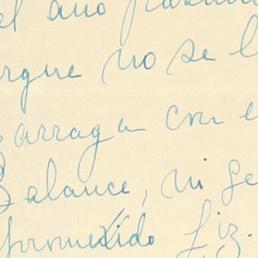 el año pasado
orque no se l
arraga con e
Balance, ni se
prometido